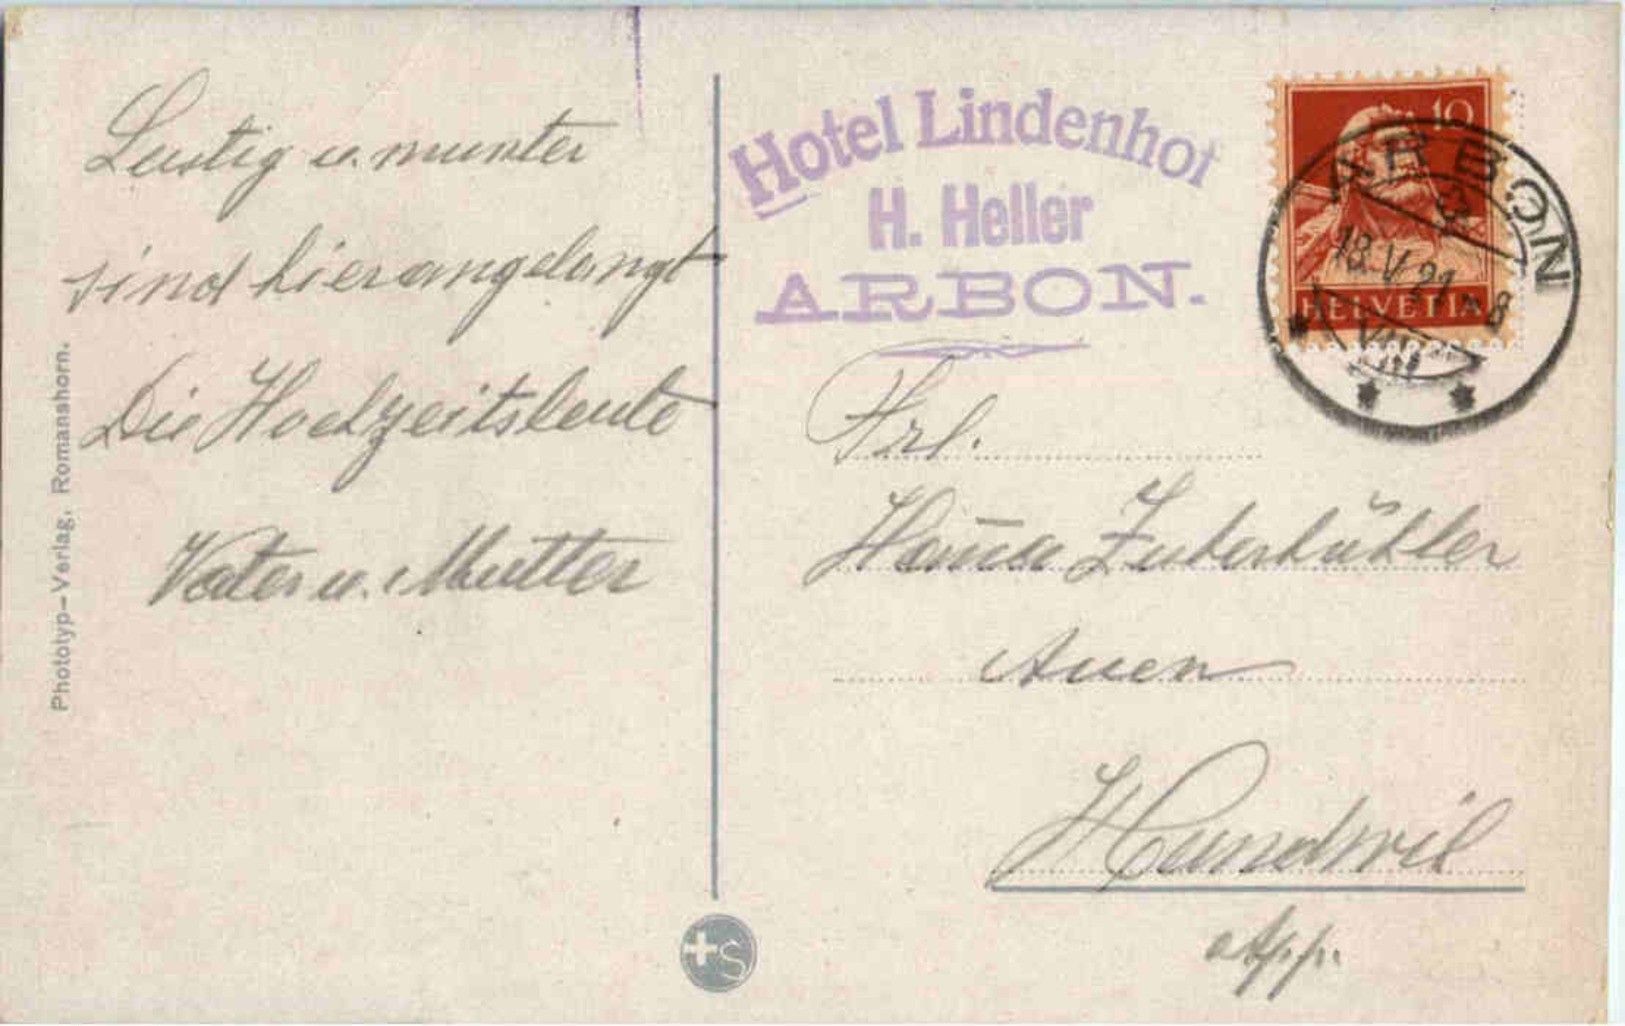 Lustig u. munter
sind hier angelangt
Die Hochzeitsleute
Vater u. Mutter
Phototyp-Verlag, Romanshorn.
Hotel Lindenhof
H. Heller
ARBON.
10
HELVETIA
ARBON
18.V.21-8
VIII
Frl.
Zuberbühler
Auen
Hundwil
App.
+S